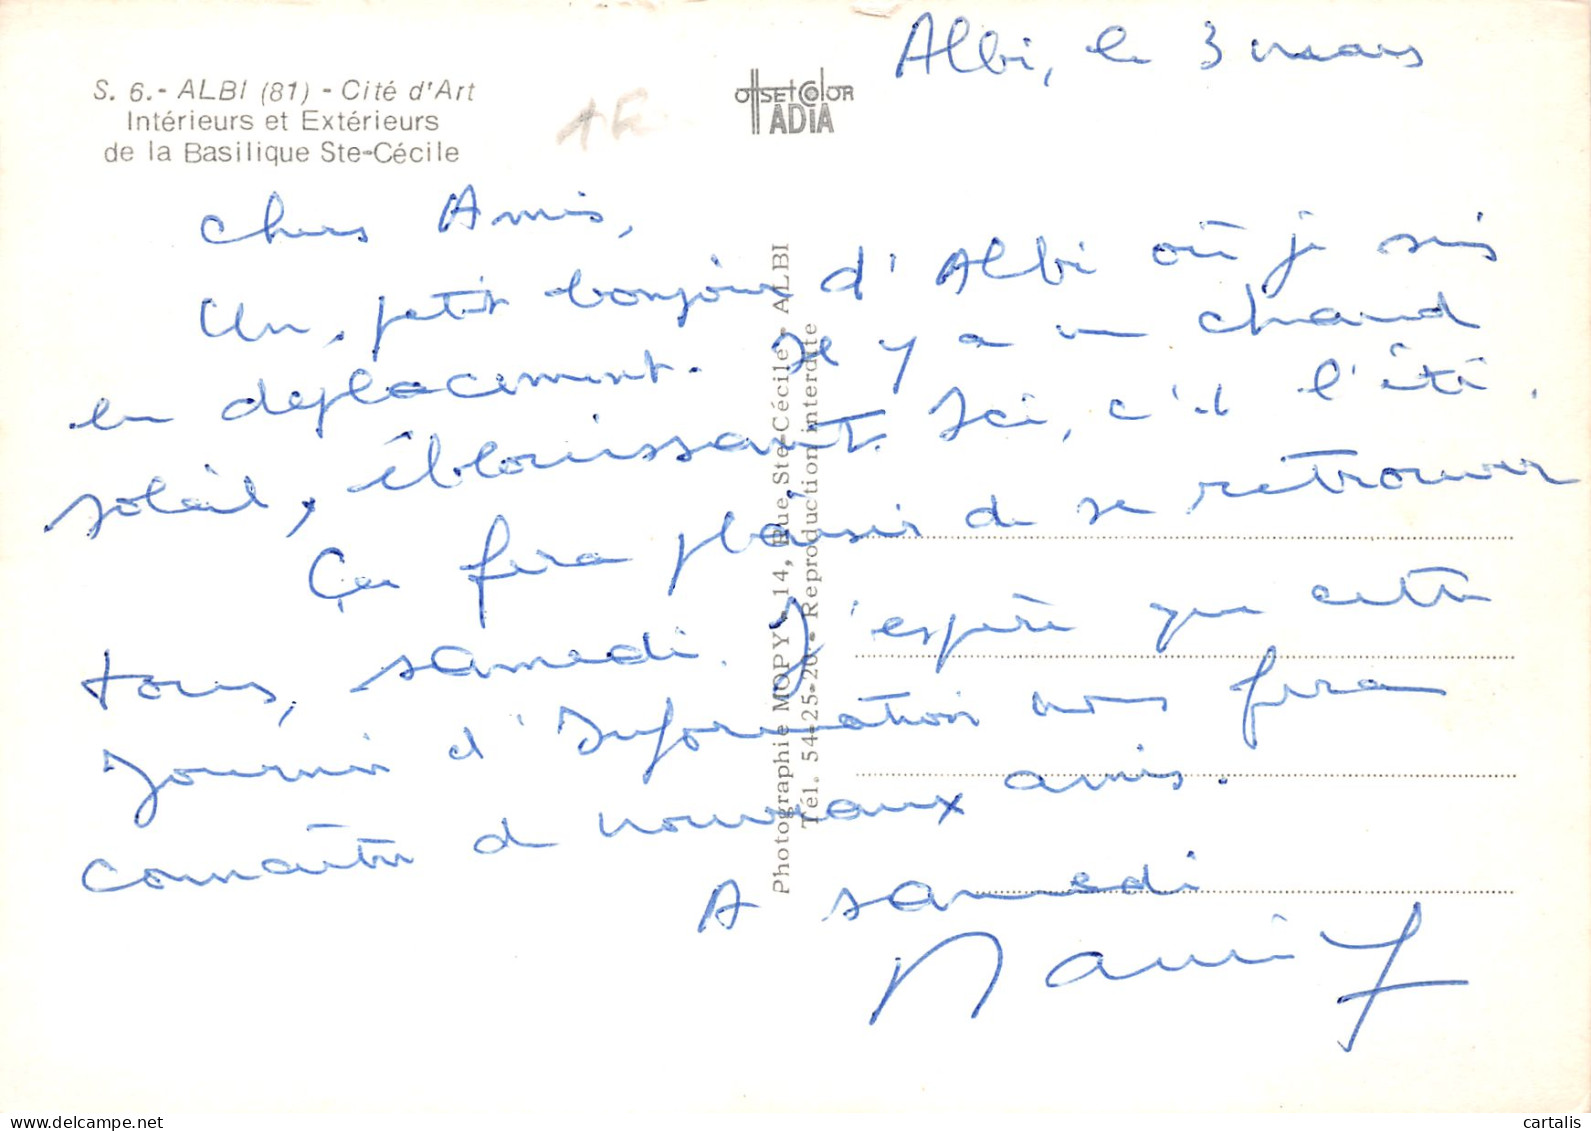 S. 6.- ALBI (81) - Cité d'Art
Intérieurs et Extérieurs
de la Basilique Ste-Cécile
1F
offset color
ADIA
Albi, le 3 mars
Chers Amis,
Un petit bonjour d'Albi où je suis
en déplacement. Il y a un chaud
soleil, éblouissant. Ici, c'est l'été.
Ça fera plaisir de se retrouver
tous, samedi. J'espère que cette
Journée d'Information nous fera
connaître de nouveaux amis.
A samedi
Photographie MOPY - 14, Rue Ste-Cécile - ALBI
Tél. 54-25-20 - Reproduction interdite
cartalis
www.delcampe.net